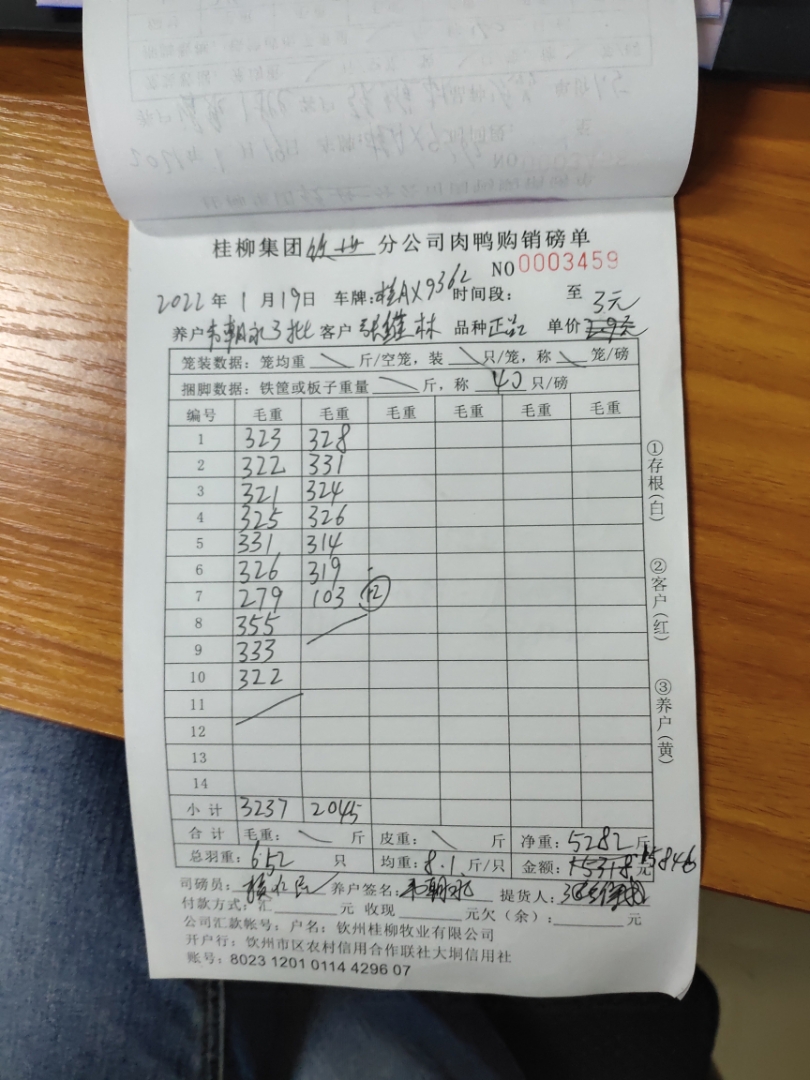 桂柳集团 钦州 分公司肉鸭购销磅单
NO 0003459
2022年 1月 19日 车牌:桂AX9362 时间段: 至
3元
养户 韦朝永3批 客户 张维林 品种 正品 单价 2.9元
笼装数据:笼均重 斤/空笼,装 只/笼,称 笼/磅
捆脚数据:铁筐或板子重量 斤,称 40 只/磅
编号 毛重 毛重 毛重 毛重 毛重 毛重
1 323 328
2 322 331
3 321 324
4 325 326
5 331 314
6 326 319
7 279 103 12
8 355
9 333
10 322
11
12
13
14
小计 3237 2045
合计 毛重: 斤 皮重: 斤 净重:5282斤
总羽重:652 只 均重:8.1斤/只 金额:15318元 15846
司磅员: 养户签名:韦朝永 提货人:
付款方式:汇 元 收现 元欠(余): 元
公司汇款帐号:户名:钦州桂柳牧业有限公司
开户行:钦州市区农村信用合作联社大垌信用社
账号:8023 1201 0114 4296 07
①存根(白)
②客户(红)
③养户(黄)